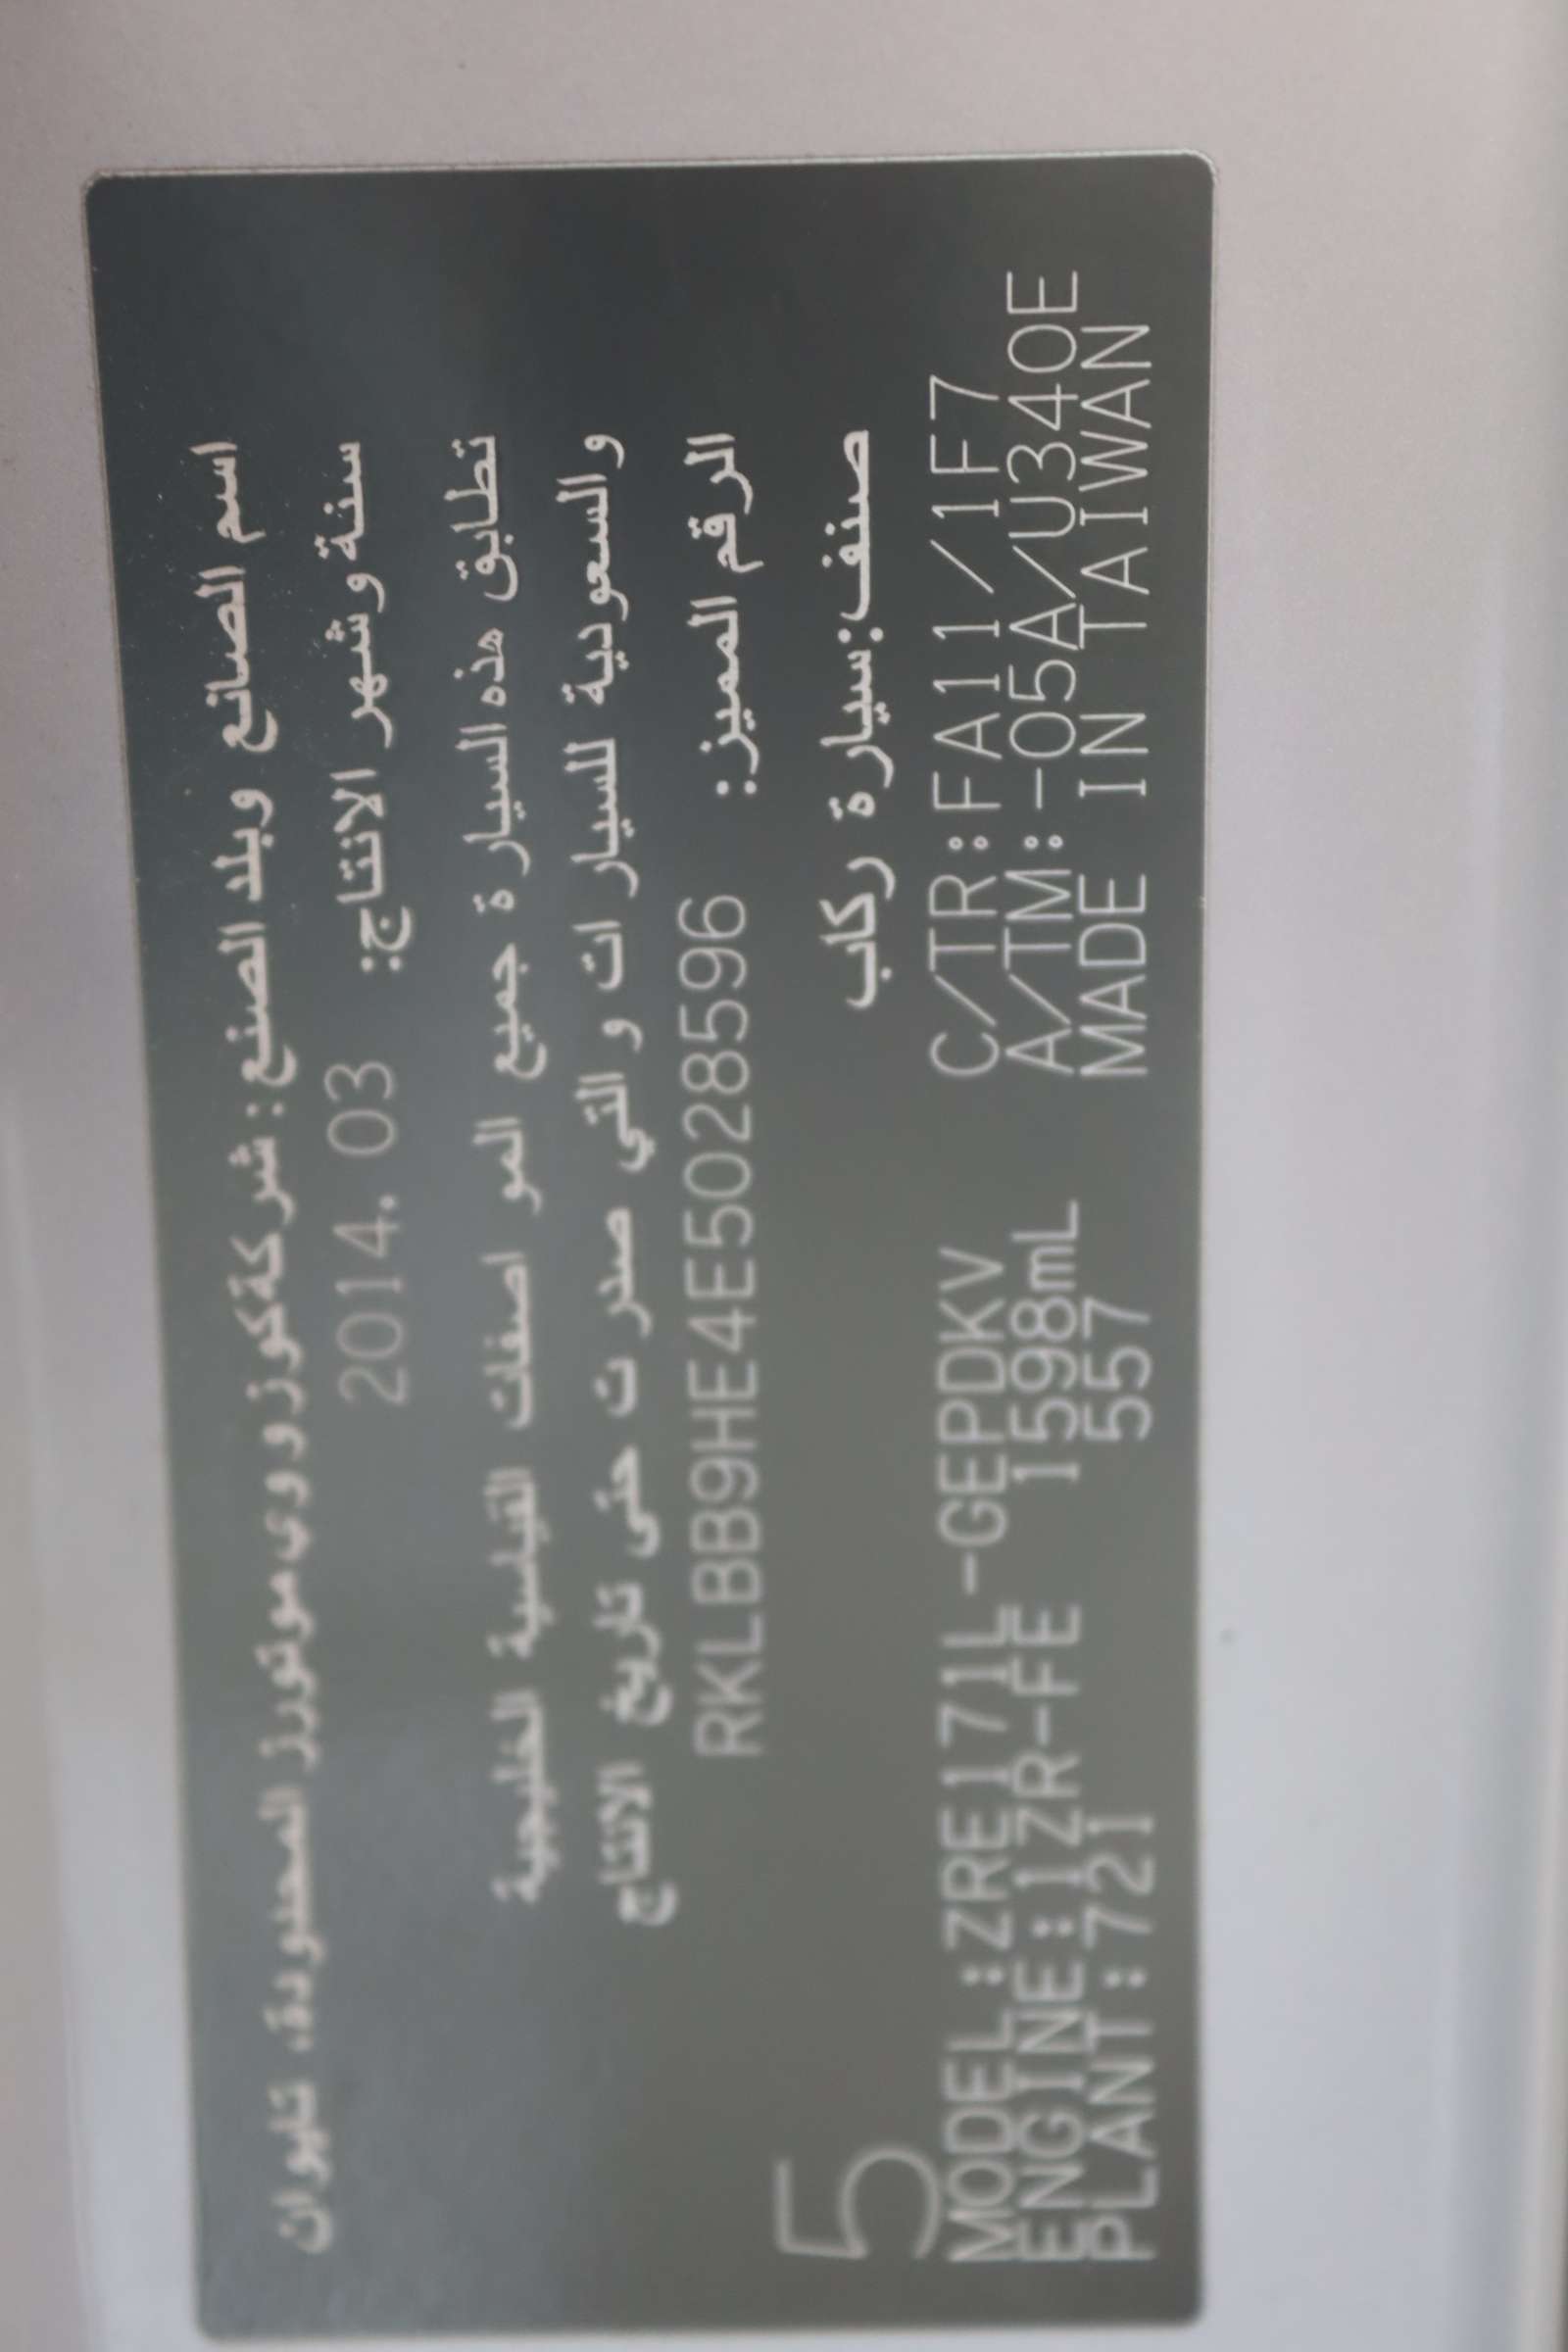 اسم الصانع وبلد الصنع: شركة كوزووي موتورز المحدودة، تايوان
سنة وشهر الانتاج: 2014. 03
تطابق هذه السيارة جميع المواصفات القياسية الخليجية
والسعودية للسيارات والتي صدرت حتى تاريخ الانتاج
الرقم المميز: RKLBB9HE4E5028596
صنف:سيارة ركاب
5
MODEL:ZRE171L-GEPDKV C/TR:FA11/1F7
ENGINE:1ZR-FE 1598mL A/TM:-05A/U340E
PLANT:721 557 MADE IN TAIWAN